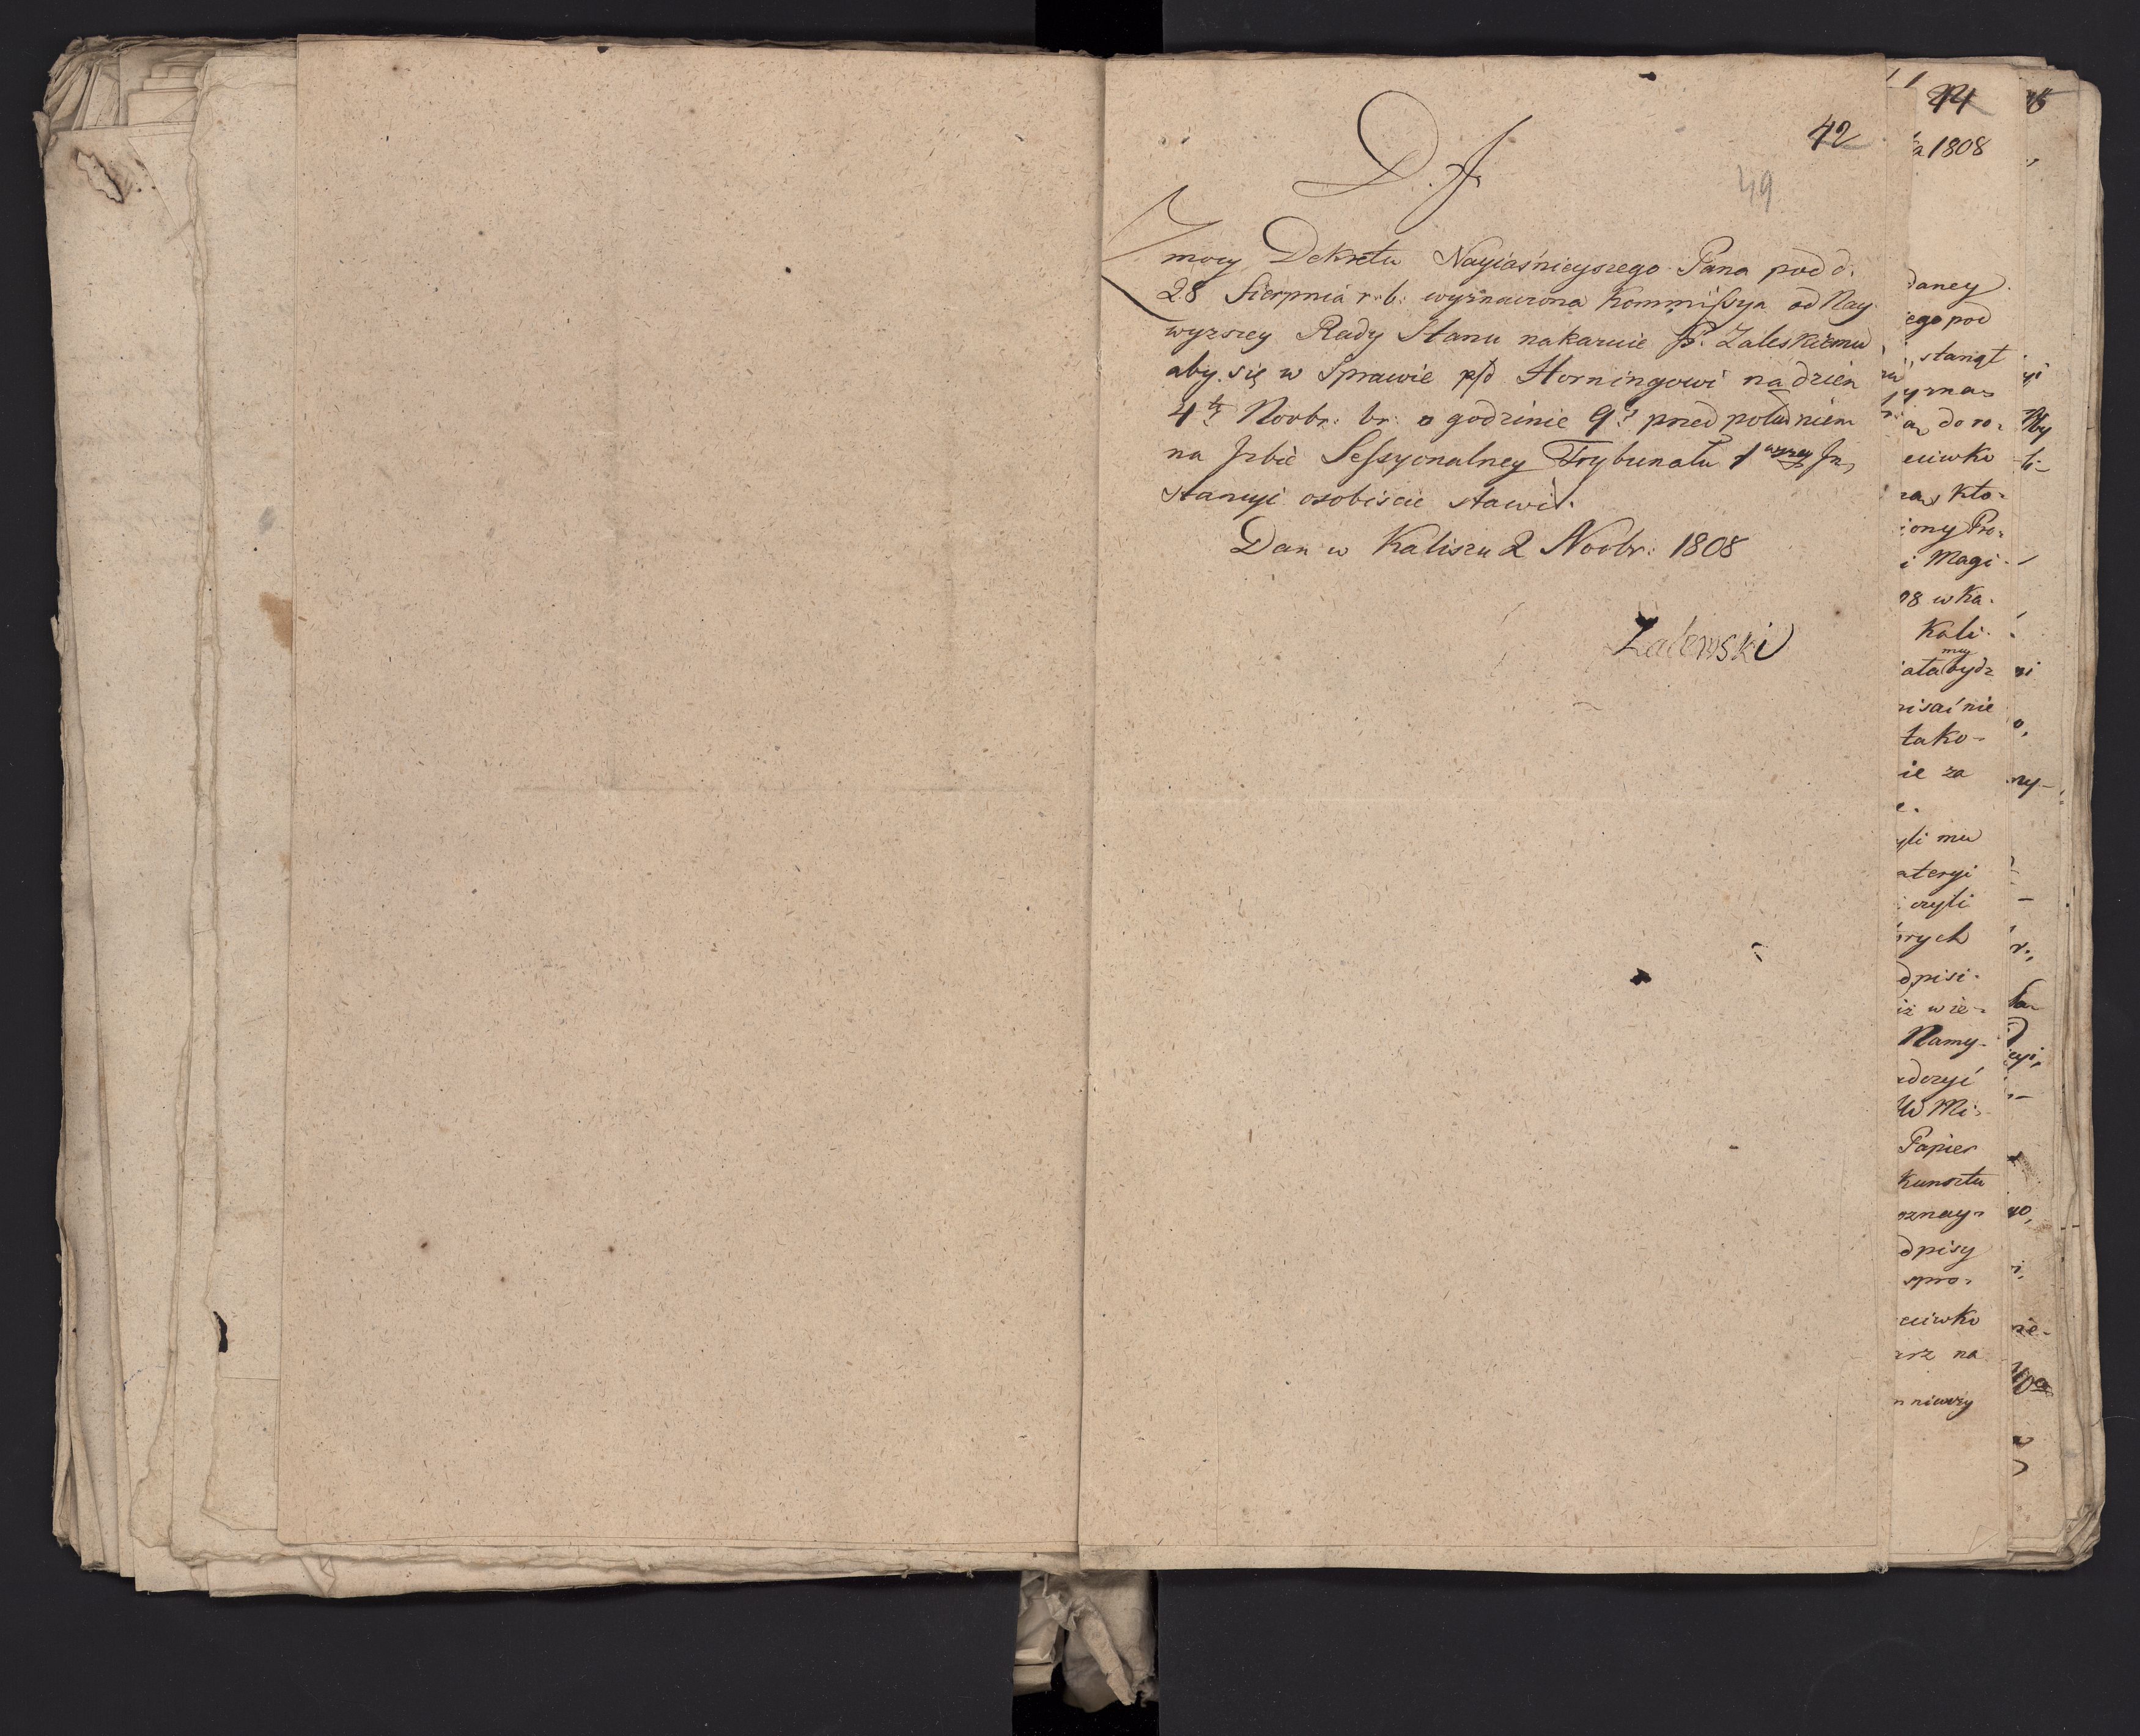 42
49
D. J.
Z mocy Dekretu Nayiaśnieyszego Pana pod d.
28 Sierpnia r. b. wyznaczona Kommissya od Nay
wyzszey Rady Stanu nakazuie P. Zaleskiemu
aby się w Sprawie p/d Horningowi na dzien
4ty Novbr: br: o godzinie 9 przed południem
na Izbie Sessyonalney Trybunału 1 wszey In,
stancyi osobiście stawił.
Dan w Kaliszu 2 Novbr: 1808
Zalewski
44
a 1808
daney
ego pod
stanął
do ro-
eciwko
Kto-
iony Pro-
i Magi-
08 w Ka-
Kali-
isać nie
tako-
ie za
yli mu
ateryi
czyli
rych
dpisi-
iż wie-
Namy-
W Mi-
Papier
Kunsztu
oznay-
dpisy
spro-
eciwko
arz na